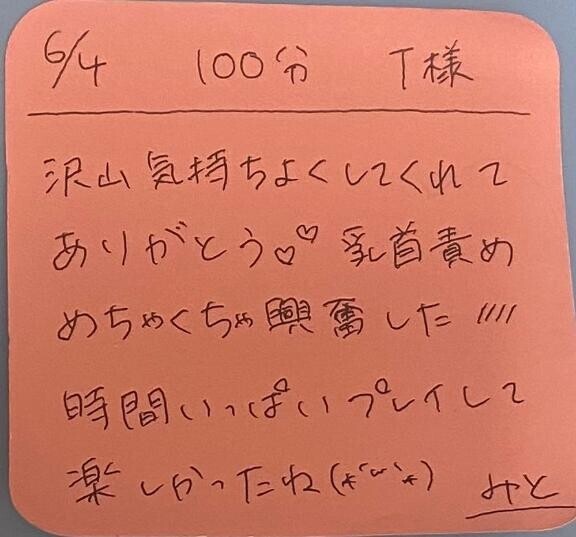 6/4 100分 T様
沢山気持ちよくしてくれて
ありがとう♡♡ 乳首責め
めちゃくちゃ興奮した////
時間いっぱいプレイして
楽しかったね(*´ω`*) みと